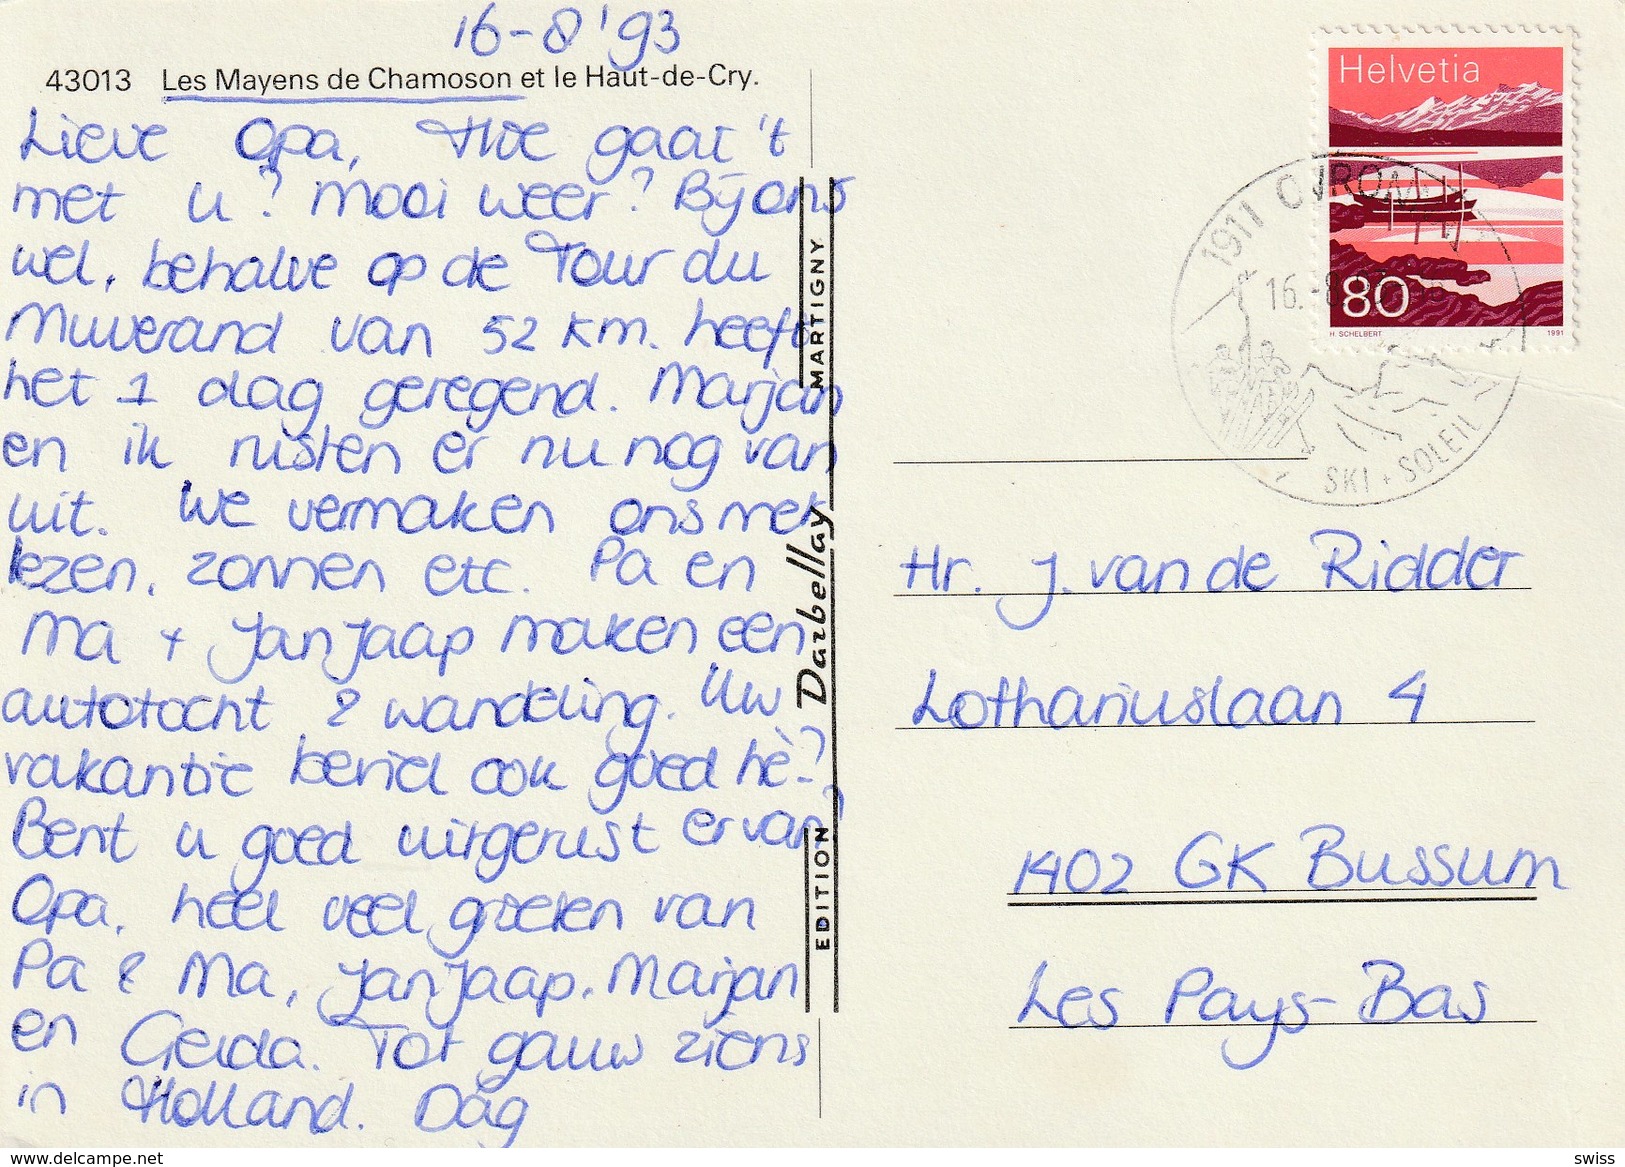 16-8 '93
43013 Les Mayens de Chamoson et le Haut-de-Cry.
Lieve Opa, Hoe gaat 't
met u? Mooi weer? Bij ons
wel, behalve op de Tour du
Muverand van 52 km. heeft
het 1 dag geregend. Marjan
en ik rusten er nu nog van
uit. We vermaken ons met
lezen, zonnen etc. Pa en
Ma + Jan Jaap maken een
autotocht & wandeling. Uw
vakantie beviel ook goed hè?
Bent u goed uitgerust ervan?
Opa, heel veel groeten van
Pa & Ma, Jan Jaap, Marjan
en Gerda. Tot gauw ziens
in Holland. Dág
EDITION Darbellay MARTIGNY
Helvetia
80
H. SCHELBERT 1991
1911 OVRONNAZ
16.-8.93
SKI + SOLEIL
Hr. J. van de Ridder
Lothariuslaan 4
1402 GK Bussum
Les Pays-Bas
www.delcampe.net
swiss